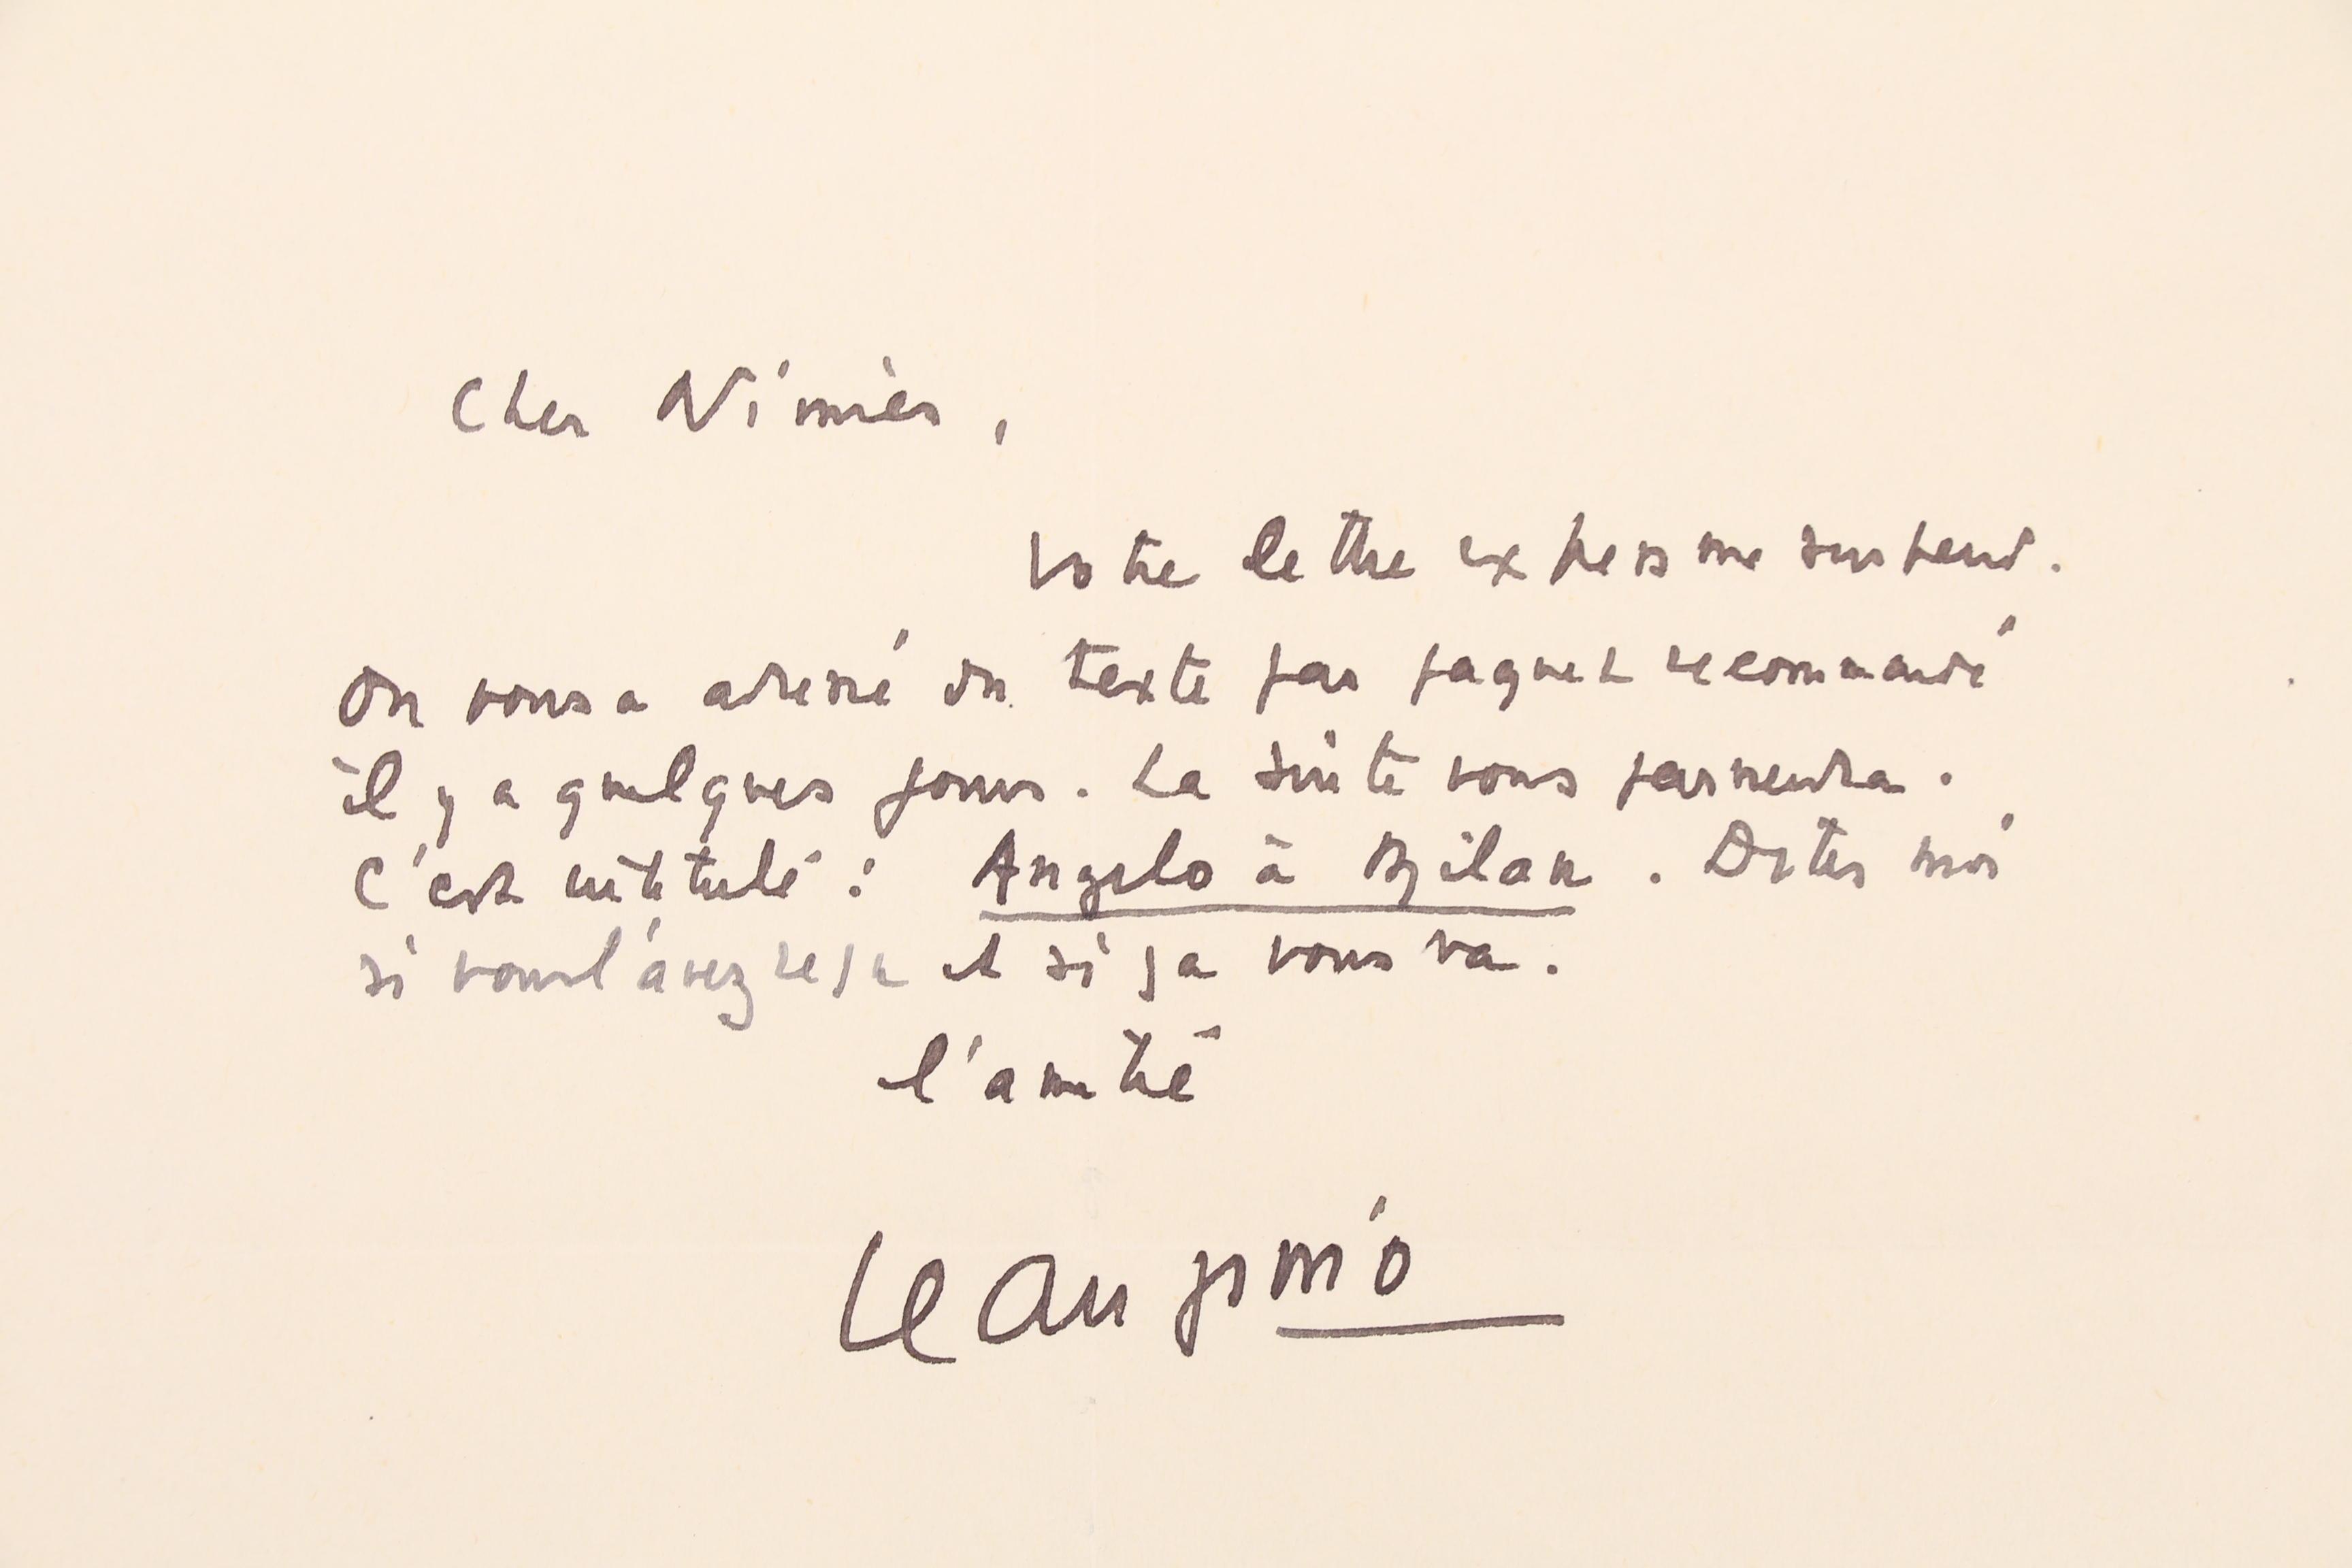 Cher Nimier,
Votre lettre express me surprend.
On vous a adressé un texte par paquet recommandé
il y a quelques jours. La suite vous parviendra.
C'est intitulé : Angelo à Milan. Dites moi
si vous l'avez reçu et si ça vous va.
l'amitié
Jean Giono